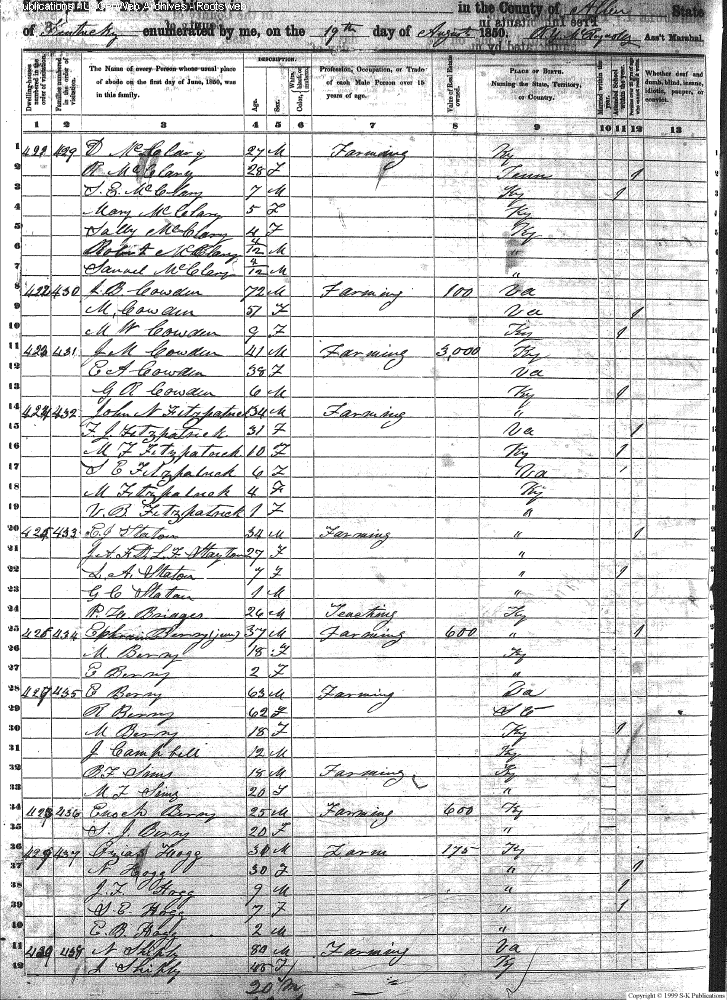 in the County of Allen State
of Kentucky enumerated by me, on the 19th day of August 1850. Ass't Marshal.
DESCRIPTION.
Dwelling-houses numbered in the order of visitation.
Families numbered in the order of visitation.
The Name of every Person whose usual place of abode on the first day of June, 1850, was in this family.
Age.
Sex.
Profession, Occupation, or Trade of each Male Person over 15 years of age.
Value of Real Estate owned.
PLACE OF BIRTH. Naming the State, Territory, or Country.
Married within the year.
Whether deaf and dumb, blind, insane, idiotic, pauper, or convict.
1 2 3 4 5 6 7 8 9 10 11 12 13
1 429 D McClary 27 M Farming Ky
2 R McClary 28 F Tenn 1
3 S. E. McClary 7 M Ky 1
4 Mary McClary 5 F Ky
5 Sally McClary 4 F Ky
6 Robert McClary 4/12 M "
7 Samuel McClary 4/12 M "
8 422 430 B Cowden 72 M Farming 100 Va
9 M. Cowden 51 F Va 1
10 M W Cowden 9 F Ky 1
11 423 431 J M Cowden 41 M Farming 3,000 Ky
12 E A Cowden 38 F Va
13 G A Cowden 6 M Ky 1
14 424 432 John N Fitzpatrick 34 M Farming "
15 F. J. Fitzpatrick 31 F Va 1
16 M F Fitzpatrick 10 F Ky 1
17 S E Fitzpatrick 6 F Va 1
18 M Fitzpatrick 4 F Ky
19 V. B Fitzpatrick 1 F "
20 425 433 E. J Staton 34 M Farming " 1
21 Stayton 27 F "
22 L. A. Staton 7 F " 1
23 G C Staton 1 M "
24 Bridges 26 M Teaching Ky
25 434 Ephraim Berry (jun) 37 M Farming 600 " 1
26 M Berry 18 F Ky
27 E Berry 2 F "
28 427 435 E Berry 63 M Farming
29 R Berry 62 F S C
30 M Berry 18 F Ky 1
31 J Campbell 12 M Ky
32 B. F Sims 18 M Farming Ky
33 M F Sims 20 F "
34 436 Enoch Berry 25 M Farming 600 Ky
35 S. J. Berry 20 F "
36 429 437 Hogg 30 M Farm 175 Ky
37 N Hogg 30 F " 1
38 J. F. Hogg 9 M " 1
39 S. E. Hogg 7 F " 1
40 E. B Hogg 2 M "
N Shipley 80 M Farming Va
Shipley F Ky
20 M
Copyright © 1999 S-K Publications